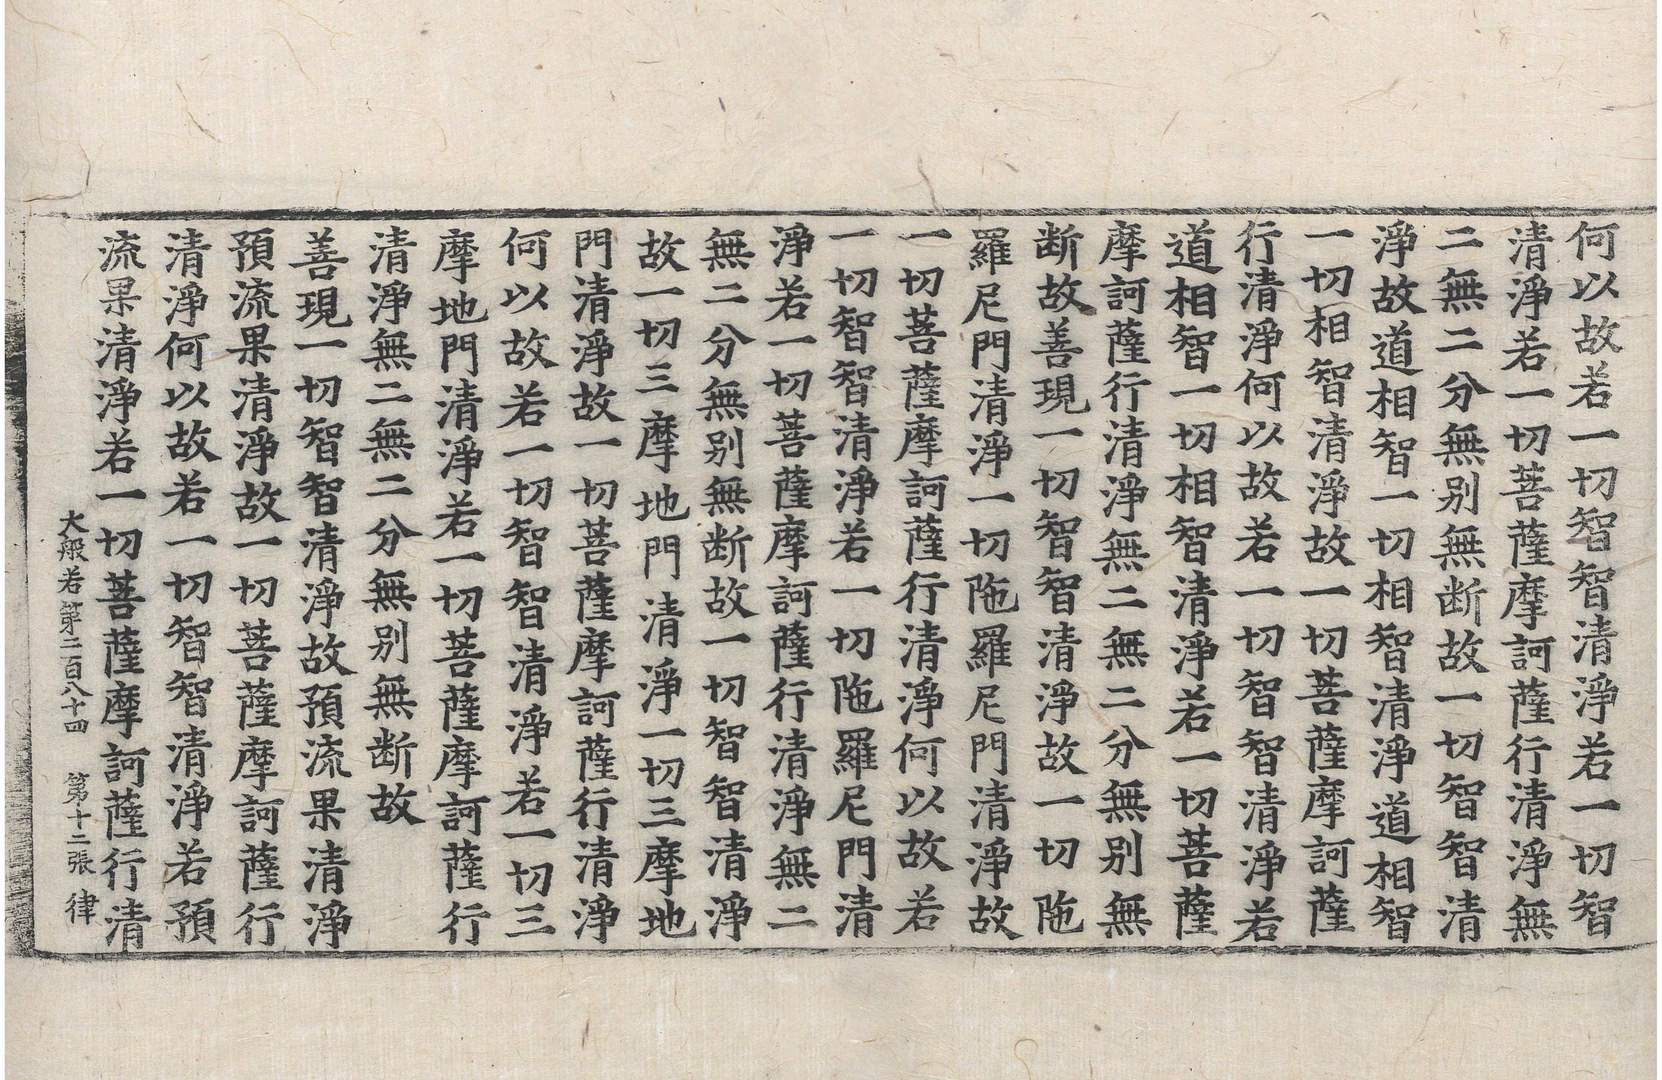 何以故若一切智智清淨若一切智
清淨若一切菩薩摩訶薩行清淨無
二無二分無别無断故一切智智清
淨故道相智一切相智清淨道相智
一切相智清淨故一切菩薩摩訶薩
行清淨何以故若一切智智清淨若
道相智一切相智清淨若一切菩薩
摩訶薩行清淨無二無二分無别無
断故善現一切智智清淨故一切陁
羅尼門清淨一切陁羅尼門清淨故
一切菩薩摩訶薩行清淨何以故若
一切智智清淨若一切陁羅尼門清
淨若一切菩薩摩訶薩行清淨無二
無二分無别無断故一切智智清淨
故一切三摩地門清淨一切三摩地
門清淨故一切菩薩摩訶薩行清淨
何以故若一切智智清淨若一切三
摩地門清淨若一切菩薩摩訶薩行
清淨無二無二分無别無断故
善現一切智智清淨故預流果清淨
預流果清淨故一切菩薩摩訶薩行
清淨何以故若一切智智清淨若預
流果清淨若一切菩薩摩訶薩行清
大般若第二百八十四 第十二張 律